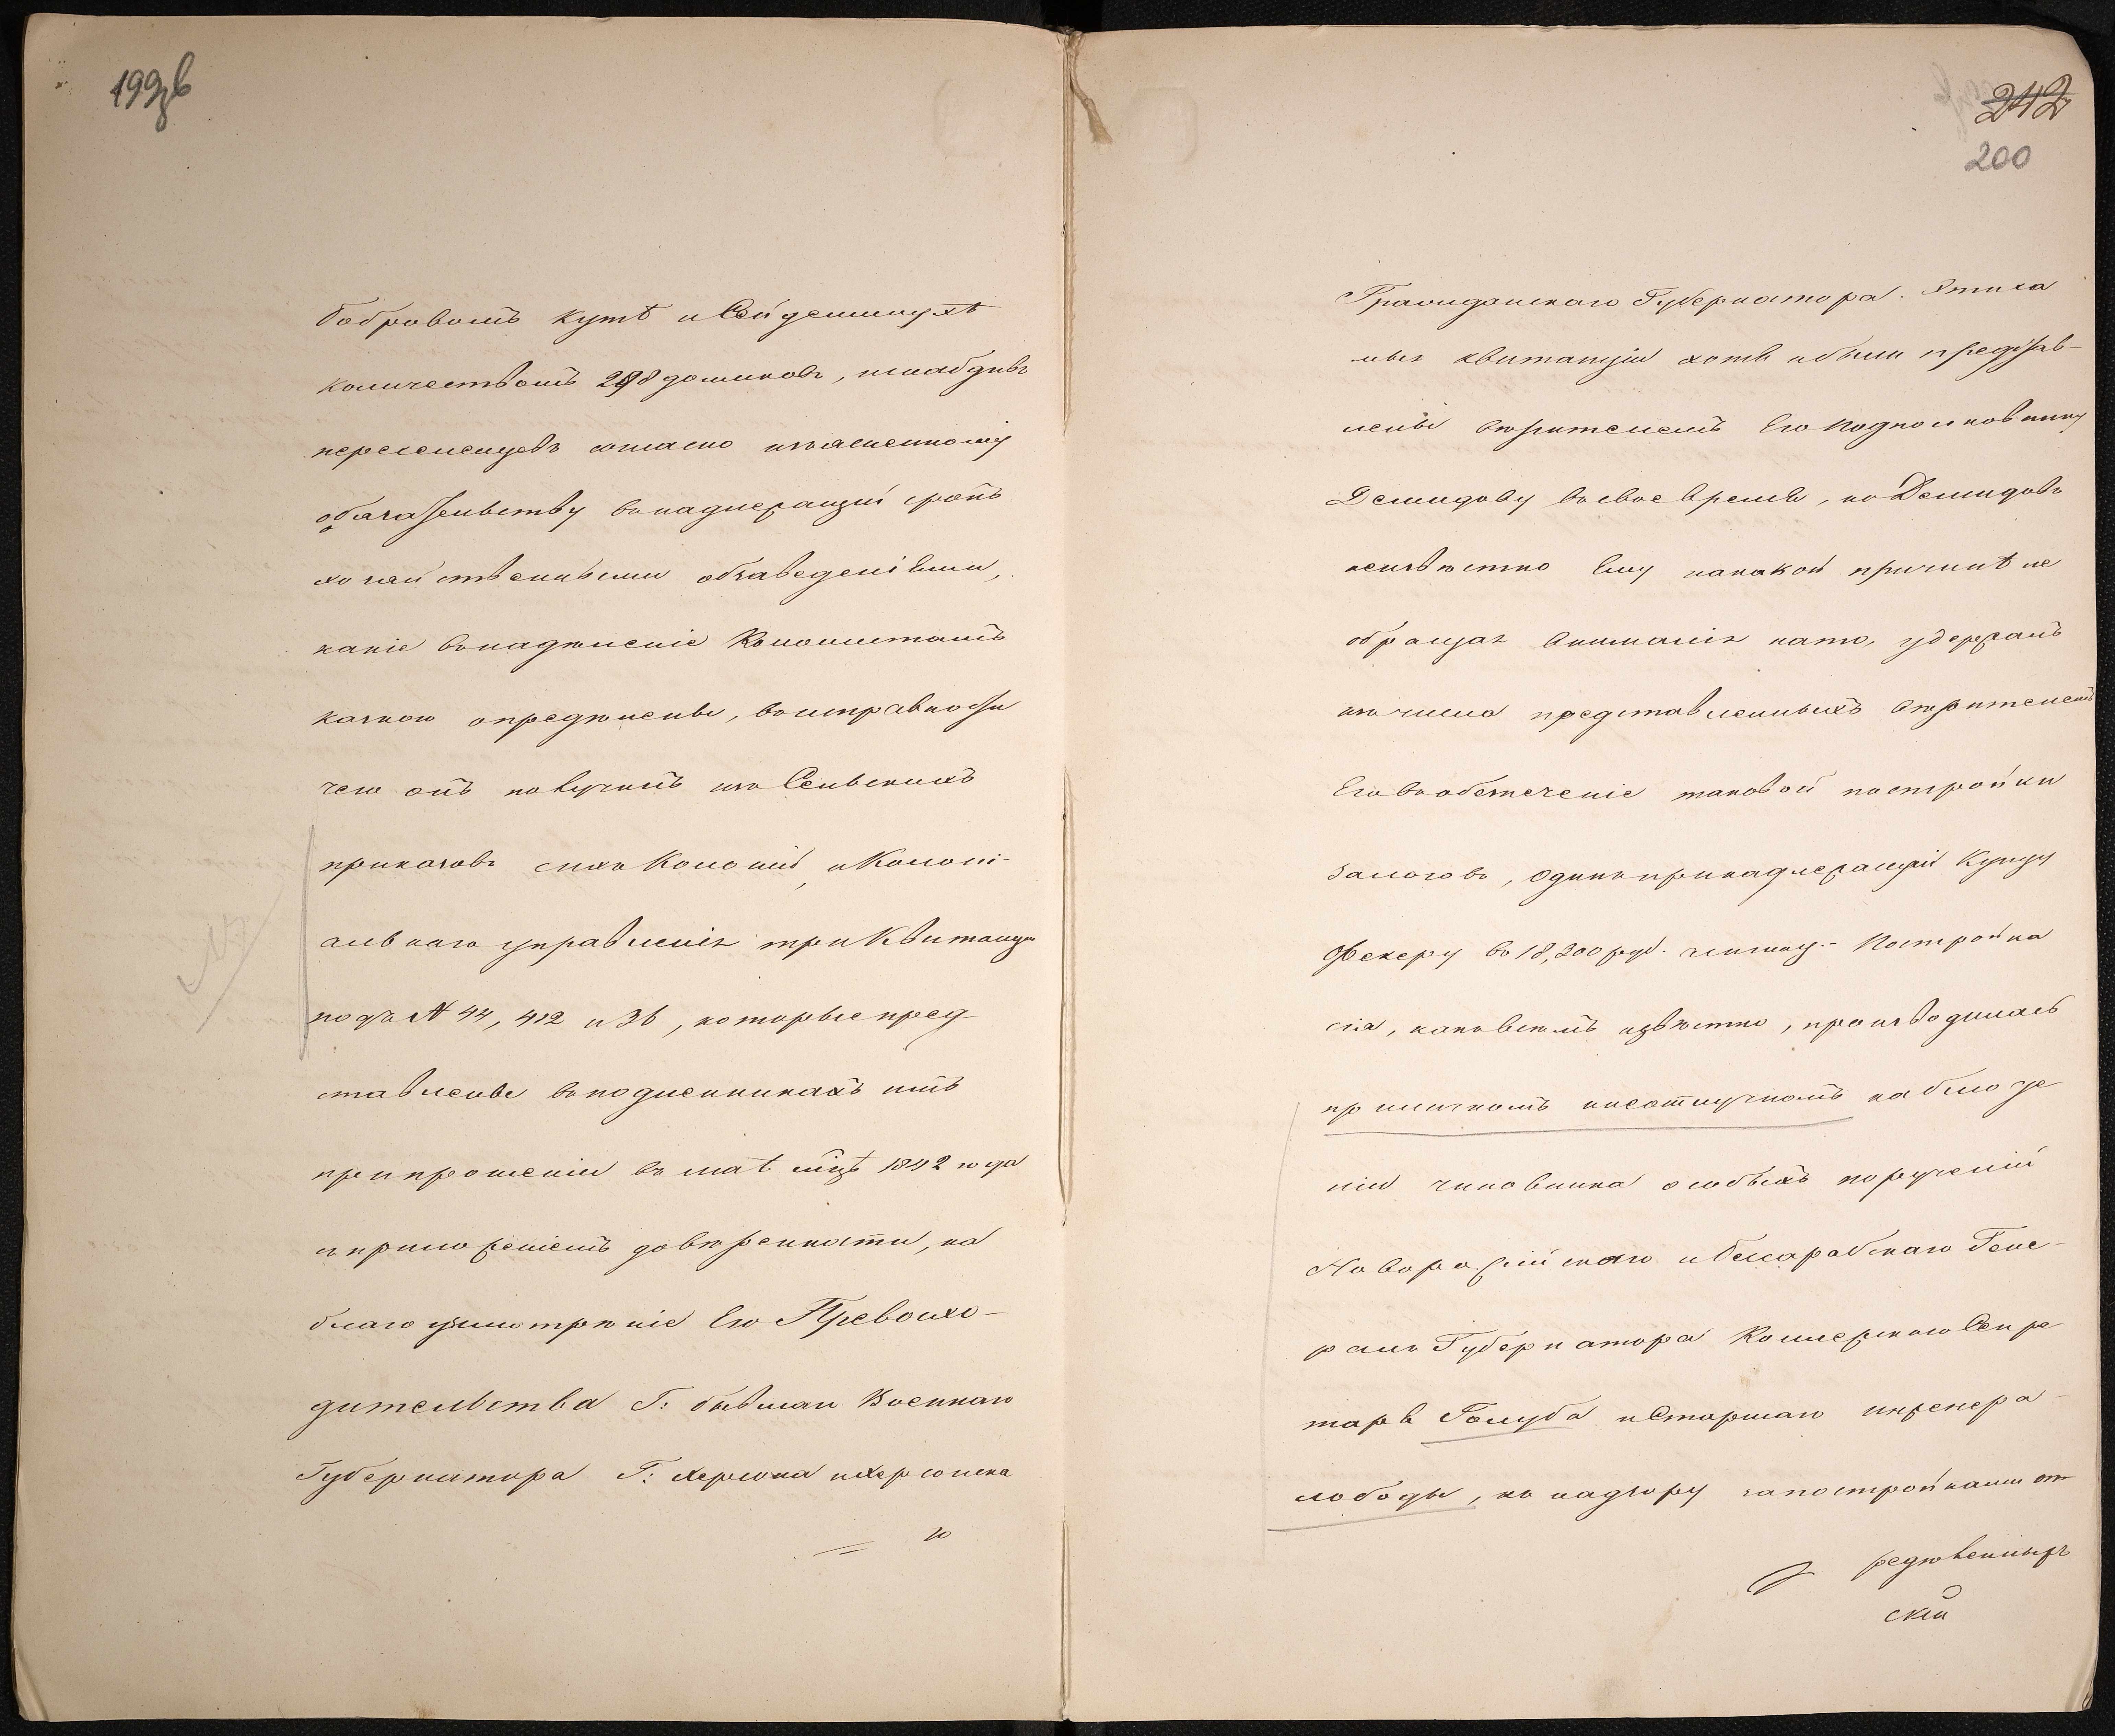 199зв
Бобровомъ Кутѣ и Сейдеминухѣ
количествомъ 298 домиковъ, и снабдивъ
переселенцевъ согласно изъясненному
обязательству въ надлежащій срокъ
хозяйственными обзаведеніями,
какіе въ надѣленіе Колонистамъ
казною опредѣлены, въ исправности
чего онъ получилъ изъ Сельскихъ
приказовъ сихъ Колоній, и Колоні-
альнаго управленія три Квитанціи
подъ № 44, 412 и 36, которые пред
ставлены въ подлинникахъ имъ
при прошеніи въ маѣ м-цѣ 1842 года
съ приложеніемъ довѣренности, на
благоусмотрѣніе Его Превосхо-
дительства Г: бывшаго Военнаго
Губернатора Г: Херсона и Херсонска
го
242
200
Гражданскаго Губернатора. Хотя сіи
квитанціи хотя и были представ-
лены вѣрителемъ Его Подполковнику
Демидову въ свое время, но Демидовъ
неизвѣстно Ему по какой причинѣ не
обращая вниманія на то, удержалъ
изъ числа представленныхъ вѣрителемъ
Его въ обезпеченіе таковой постройки
залоговъ, одинъ принадлежащій Купцу
въ 18,300 руб. Постройка
сія, какъ всемъ извѣстно, производилась
при личномъ и неотлучномъ наблюде
ніи чиновника особыхъ порученій
Новороссійскаго и Бессарабскаго Гене-
ралъ Губернатора Коллежскаго Секре
таря Голуба и Старшаго инженера
слободы, къ надзору за постройками оп
редѣленныхъ
скій